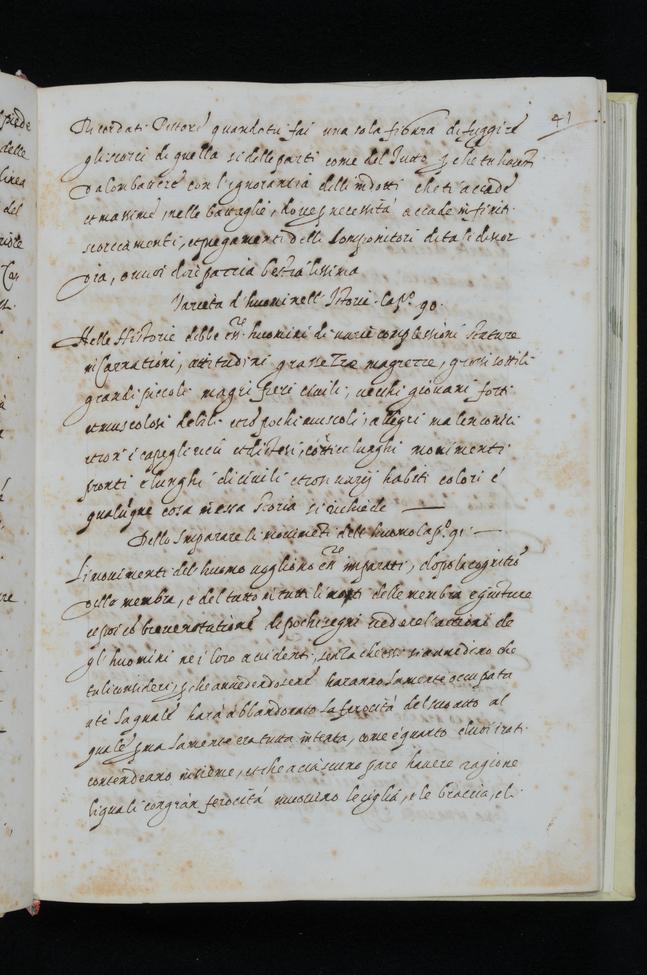 41
Ricordati Pittore quando tu fai una sola figura di fuggire
gli scorci di quella si delle parti come del tutto, che tu haverai
da combattere con l'ignorantia delli indotti che ti accade
et massime, nelle battaglie, dove necessità accade infiniti
scorciamenti, et piegamenti delli componitori di tale discor
dia, o vuoi dire pazzia bestialissima
Varietà d'huomini nell'Istorie. Cap.º 90.
Nelle Historie debbe essere huomini di varie complessioni stature
incarnationi, attitudini grassezze magrezze, grossi sottili
grandi piccoli magri fieri civili, vecchi giovani forti
et muscolosi debili et pochi muscoli, allegri malenconici
et con i capegli ricci et distesi, corti e lunghi movimenti
pronti e lunghi di civili et ordinarij habiti colori e
qualunque cosa in essa storia si richiede
Dello Imparare li movimenti dell'huomo Cap.º 91.
Li movimenti del huomo vogliono essere imparati, dopo la cognitione
delle membra, e del tutto in tutti li moti delle membra e gionture
et poi con breve notatione di pochi segni vedere l'actioni de
gl'huomini ne i loro accidenti, senza ch'essi si avvedino che
tu li consideri, che avvedendosene haranno la mente occupata
a te la quale harà abbandonato la ferocità del suo atto al
quale prima la mente era tutta intenta, come è quanto duoi irati
contendeano insieme, et che a ciascuno pare havere ragione
li quali con gran ferocità muovino le ciglia, e le braccia, e l.